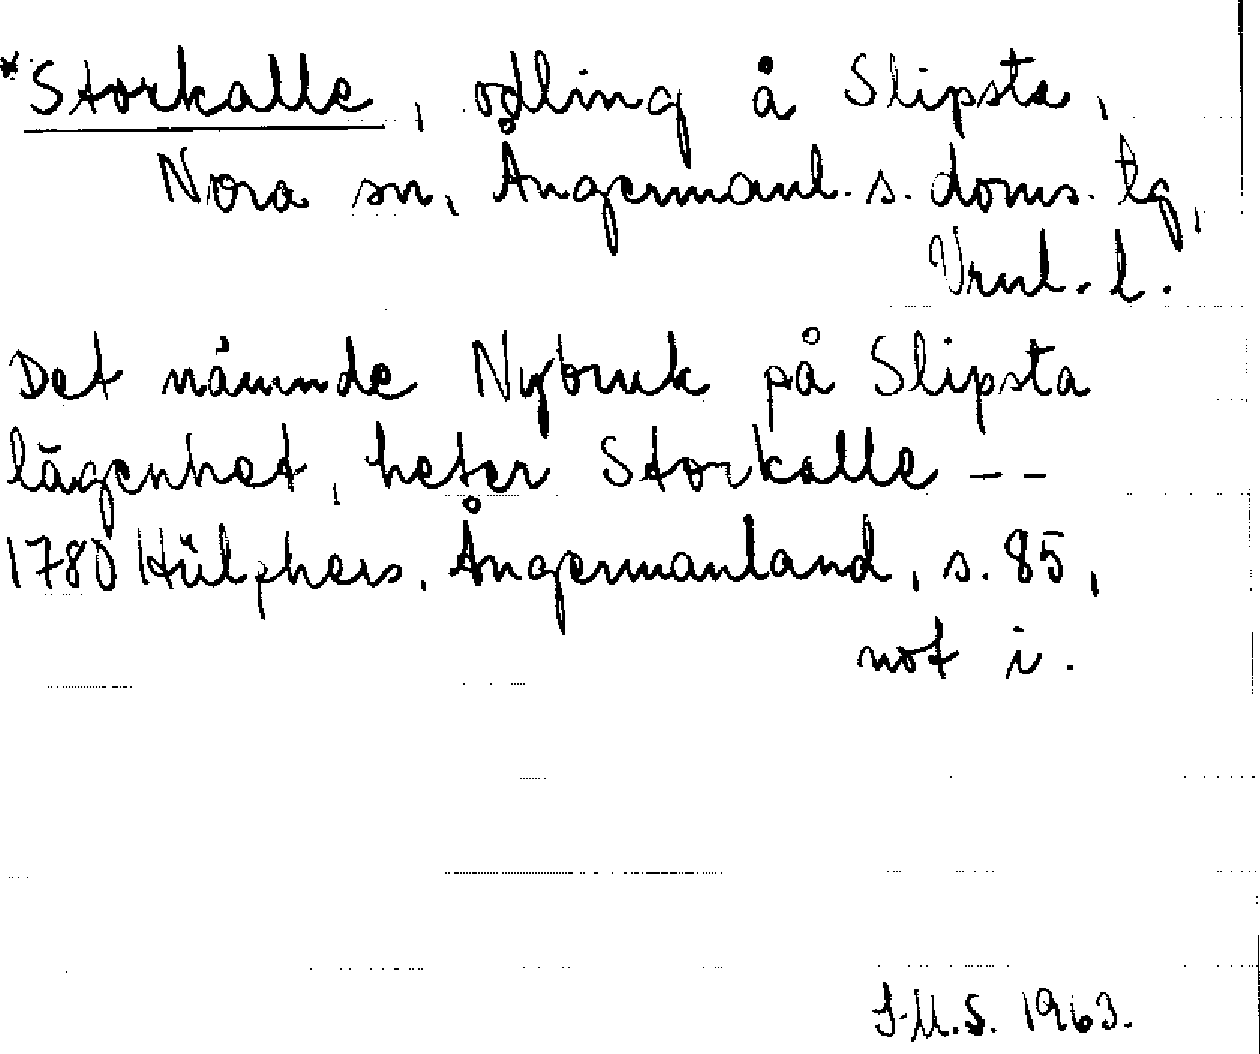 *Storkalle, odling å Slipsta,
Nora sn, Ångermanl. s. doms. lg,
Vrnl. l.
Det nämnde Nybruk på Slipsta
lägenhet, heter Storkalle --
1780 Hülphers, Ångermanland, s. 85,
not i.
J.M.S. 1963.